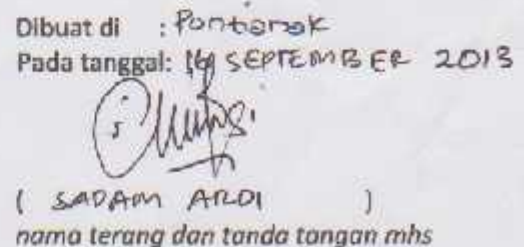 Dibuat di : Pontianak
Pada tanggal: 16 SEPTEMBER 2013
( SADAM ARDI )
nama terang dan tanda tangan mhs